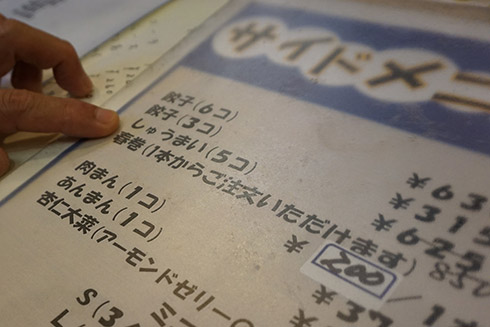 サイドメニ
餃子(6コ) ¥63
餃子(3コ) ¥315
しゅうまい(5コ) ¥625
春巻(1本からご注文いただけます)
¥ 200
肉まん(1コ)
あんまん(1コ)
杏仁大菜(アーモンドゼリー
S(3
L